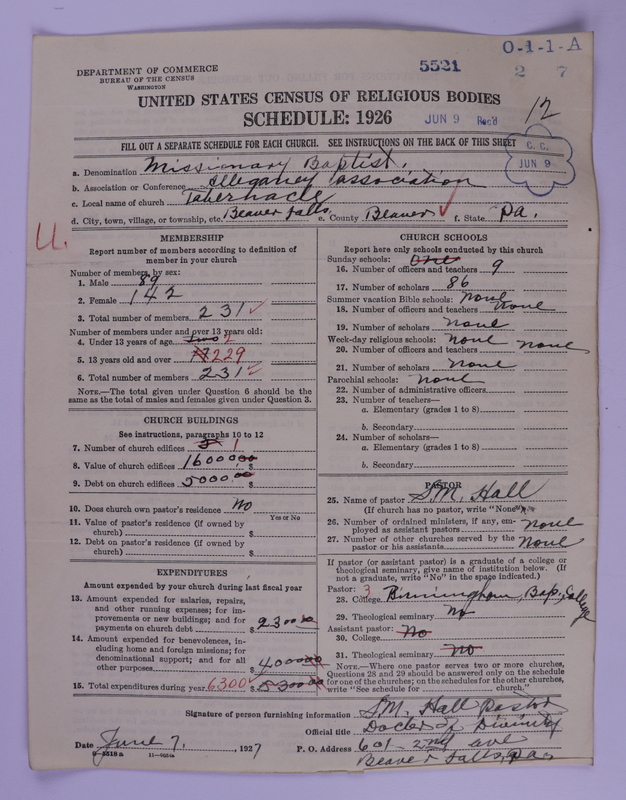 O-1-1-A
5521
2 7
DEPARTMENT OF COMMERCE
BUREAU OF THE CENSUS
WASHINGTON
UNITED STATES CENSUS OF RELIGIOUS BODIES
SCHEDULE: 1926
JUN 9 Rec'd
12
FILL OUT A SEPARATE SCHEDULE FOR EACH CHURCH. SEE INSTRUCTIONS ON THE BACK OF THIS SHEET
C. C.
JUN 9
a. Denomination Missionary Baptist.
b. Association or Conference Alleganey Association
c. Local name of church Tabernacle
d. City, town, village, or township, etc. Beaver Falls e. County Beaver f. State Pa.
U.
MEMBERSHIP
Report number of members according to definition of
member in your church
Number of members, by sex:
1. Male 89
2. Female 142
3. Total number of members 231
Number of members under and over 13 years old:
4. Under 13 years of age Two 2
5. 13 years old and over 229
6. Total number of members 231
NOTE.—The total given under Question 6 should be the
same as the total of males and females given under Question 3.
CHURCH BUILDINGS
See instructions, paragraphs 10 to 12
7. Number of church edifices 1
8. Value of church edifices $ 16000.00
9. Debt on church edifices $ 5000.00
10. Does church own pastor's residence No
Yes or No
11. Value of pastor's residence (if owned by
church) $
12. Debt on pastor's residence (if owned by
church) $
EXPENDITURES
Amount expended by your church during last fiscal year
13. Amount expended for salaries, repairs,
and other running expenses; for im-
provements or new buildings; and for
payments on church debt $ 2300.00
14. Amount expended for benevolences, in-
cluding home and foreign missions; for
denominational support; and for all
other purposes $ 4000.00
15. Total expenditures during year 6300 $ 5300.00
CHURCH SCHOOLS
Report here only schools conducted by this church
Sunday schools: One
16. Number of officers and teachers 9
17. Number of scholars 86
Summer vacation Bible schools: None
18. Number of officers and teachers None
19. Number of scholars None
Week-day religious schools: None
20. Number of officers and teachers None
21. Number of scholars None
Parochial schools: None
22. Number of administrative officers
23. Number of teachers—
a. Elementary (grades 1 to 8)
b. Secondary
24. Number of scholars—
a. Elementary (grades 1 to 8)
b. Secondary
PASTOR
25. Name of pastor S.M. Hall
(If church has no pastor, write "None")
26. Number of ordained ministers, if any, em-
ployed as assistant pastors None
27. Number of other churches served by the
pastor or his assistants None
If pastor (or assistant pastor) is a graduate of a college or
theological seminary, give name of institution below. (If
not a graduate, write "No" in the space indicated.)
Pastor: 3
28. College Birmingham, Bap, College
29. Theological seminary No
Assistant pastor:
30. College No
31. Theological seminary No
NOTE.—Where one pastor serves two or more churches,
Questions 28 and 29 should be answered only on the schedule
for one of the churches; on the schedules for the other churches,
write "See schedule for church."
Signature of person furnishing information S.M. Hall Pastor
Official title Doctor of Divinity
Date June 7, 1927 P. O. Address 601 - 2nd ave
Beaver Falls, Pa,